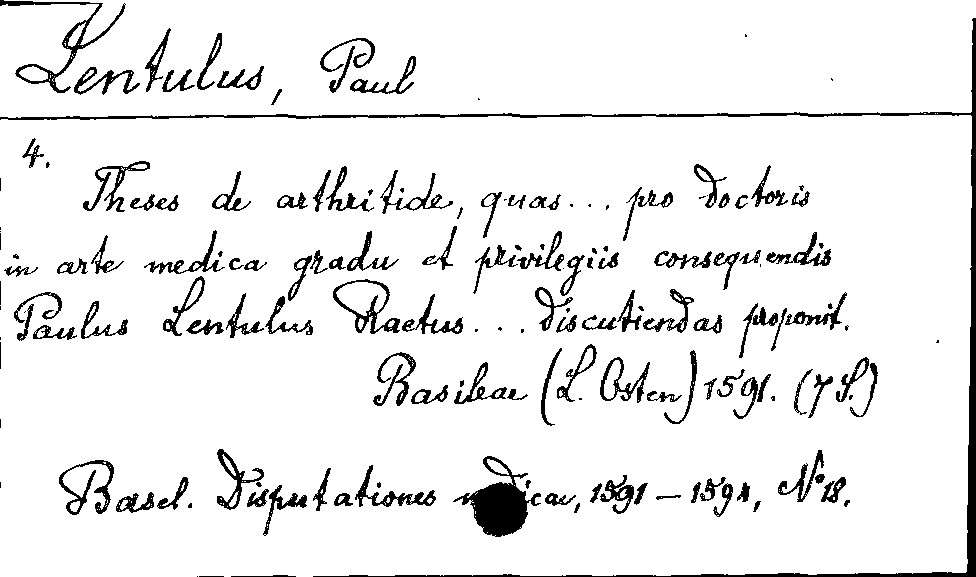 Lentulus, Paul
4.
Theses de arthritide, quas... pro Doctoris
in arte medica gradu et privilegiis consequendis
Paulus Lentulus Raetus... discutiendas proponit.
Basileae (L. Osten) 1591. (7 S.)
Basel. Disputationes medicae, 1591-1594, No 18.